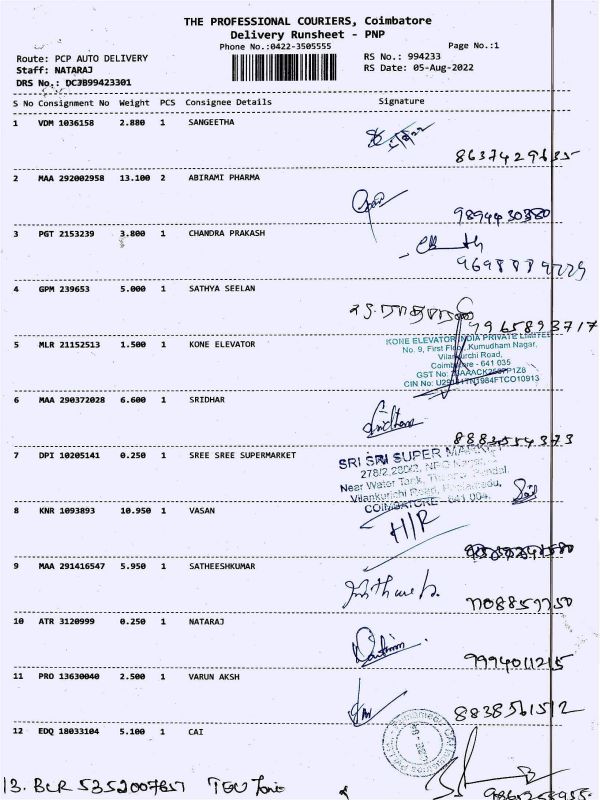 THE PROFESSIONAL COURIERS, Coimbatore
Delivery Runsheet - PNP
Phone No.:0422-3505555
Page No.:1
Route: PCP AUTO DELIVERY
RS No.: 994233
Staff: NATARAJ
RS Date: 05-Aug-2022
DRS No.: DCJB99423301
S No Consignment No Weight PCS Consignee Details Signature
1 VDM 1036158 2.880 1 SANGEETHA
2 MAA 292002958 13.100 2 ABIRAMI PHARMA
9894430380
3 PGT 2153239 3.800 1 CHANDRA PRAKASH
4 GPM 239653 5.000 1 SATHYA SEELAN
9965893717
5 MLR 21152513 1.500 1 KONE ELEVATOR
KONE ELEVATOR INDIA PRIVATE LIMITED
No. 9, First Floor, Kumudham Nagar,
Vilankurchi Road,
Coimbatore - 641 035
GST No:
CIN No:
6 MAA 290372028 6.600 1 SRIDHAR
Sridharan
7 DPI 10205141 0.250 1 SREE SREE SUPERMARKET
SRI SRI SUPER MARKET
Near Water Tank,
Vilankurichi Road,
COIMBATORE - 641 004.
8 KNR 1093893 10.950 1 VASAN
H/R
9 MAA 291416547 5.950 1 SATHEESHKUMAR
7708857750
10 ATR 3120999 0.250 1 NATARAJ
9994011215
11 PRO 13630040 2.500 1 VARUN AKSH
8838561512
12 EDQ 18033104 5.100 1 CAI
13. BLR 5352007657